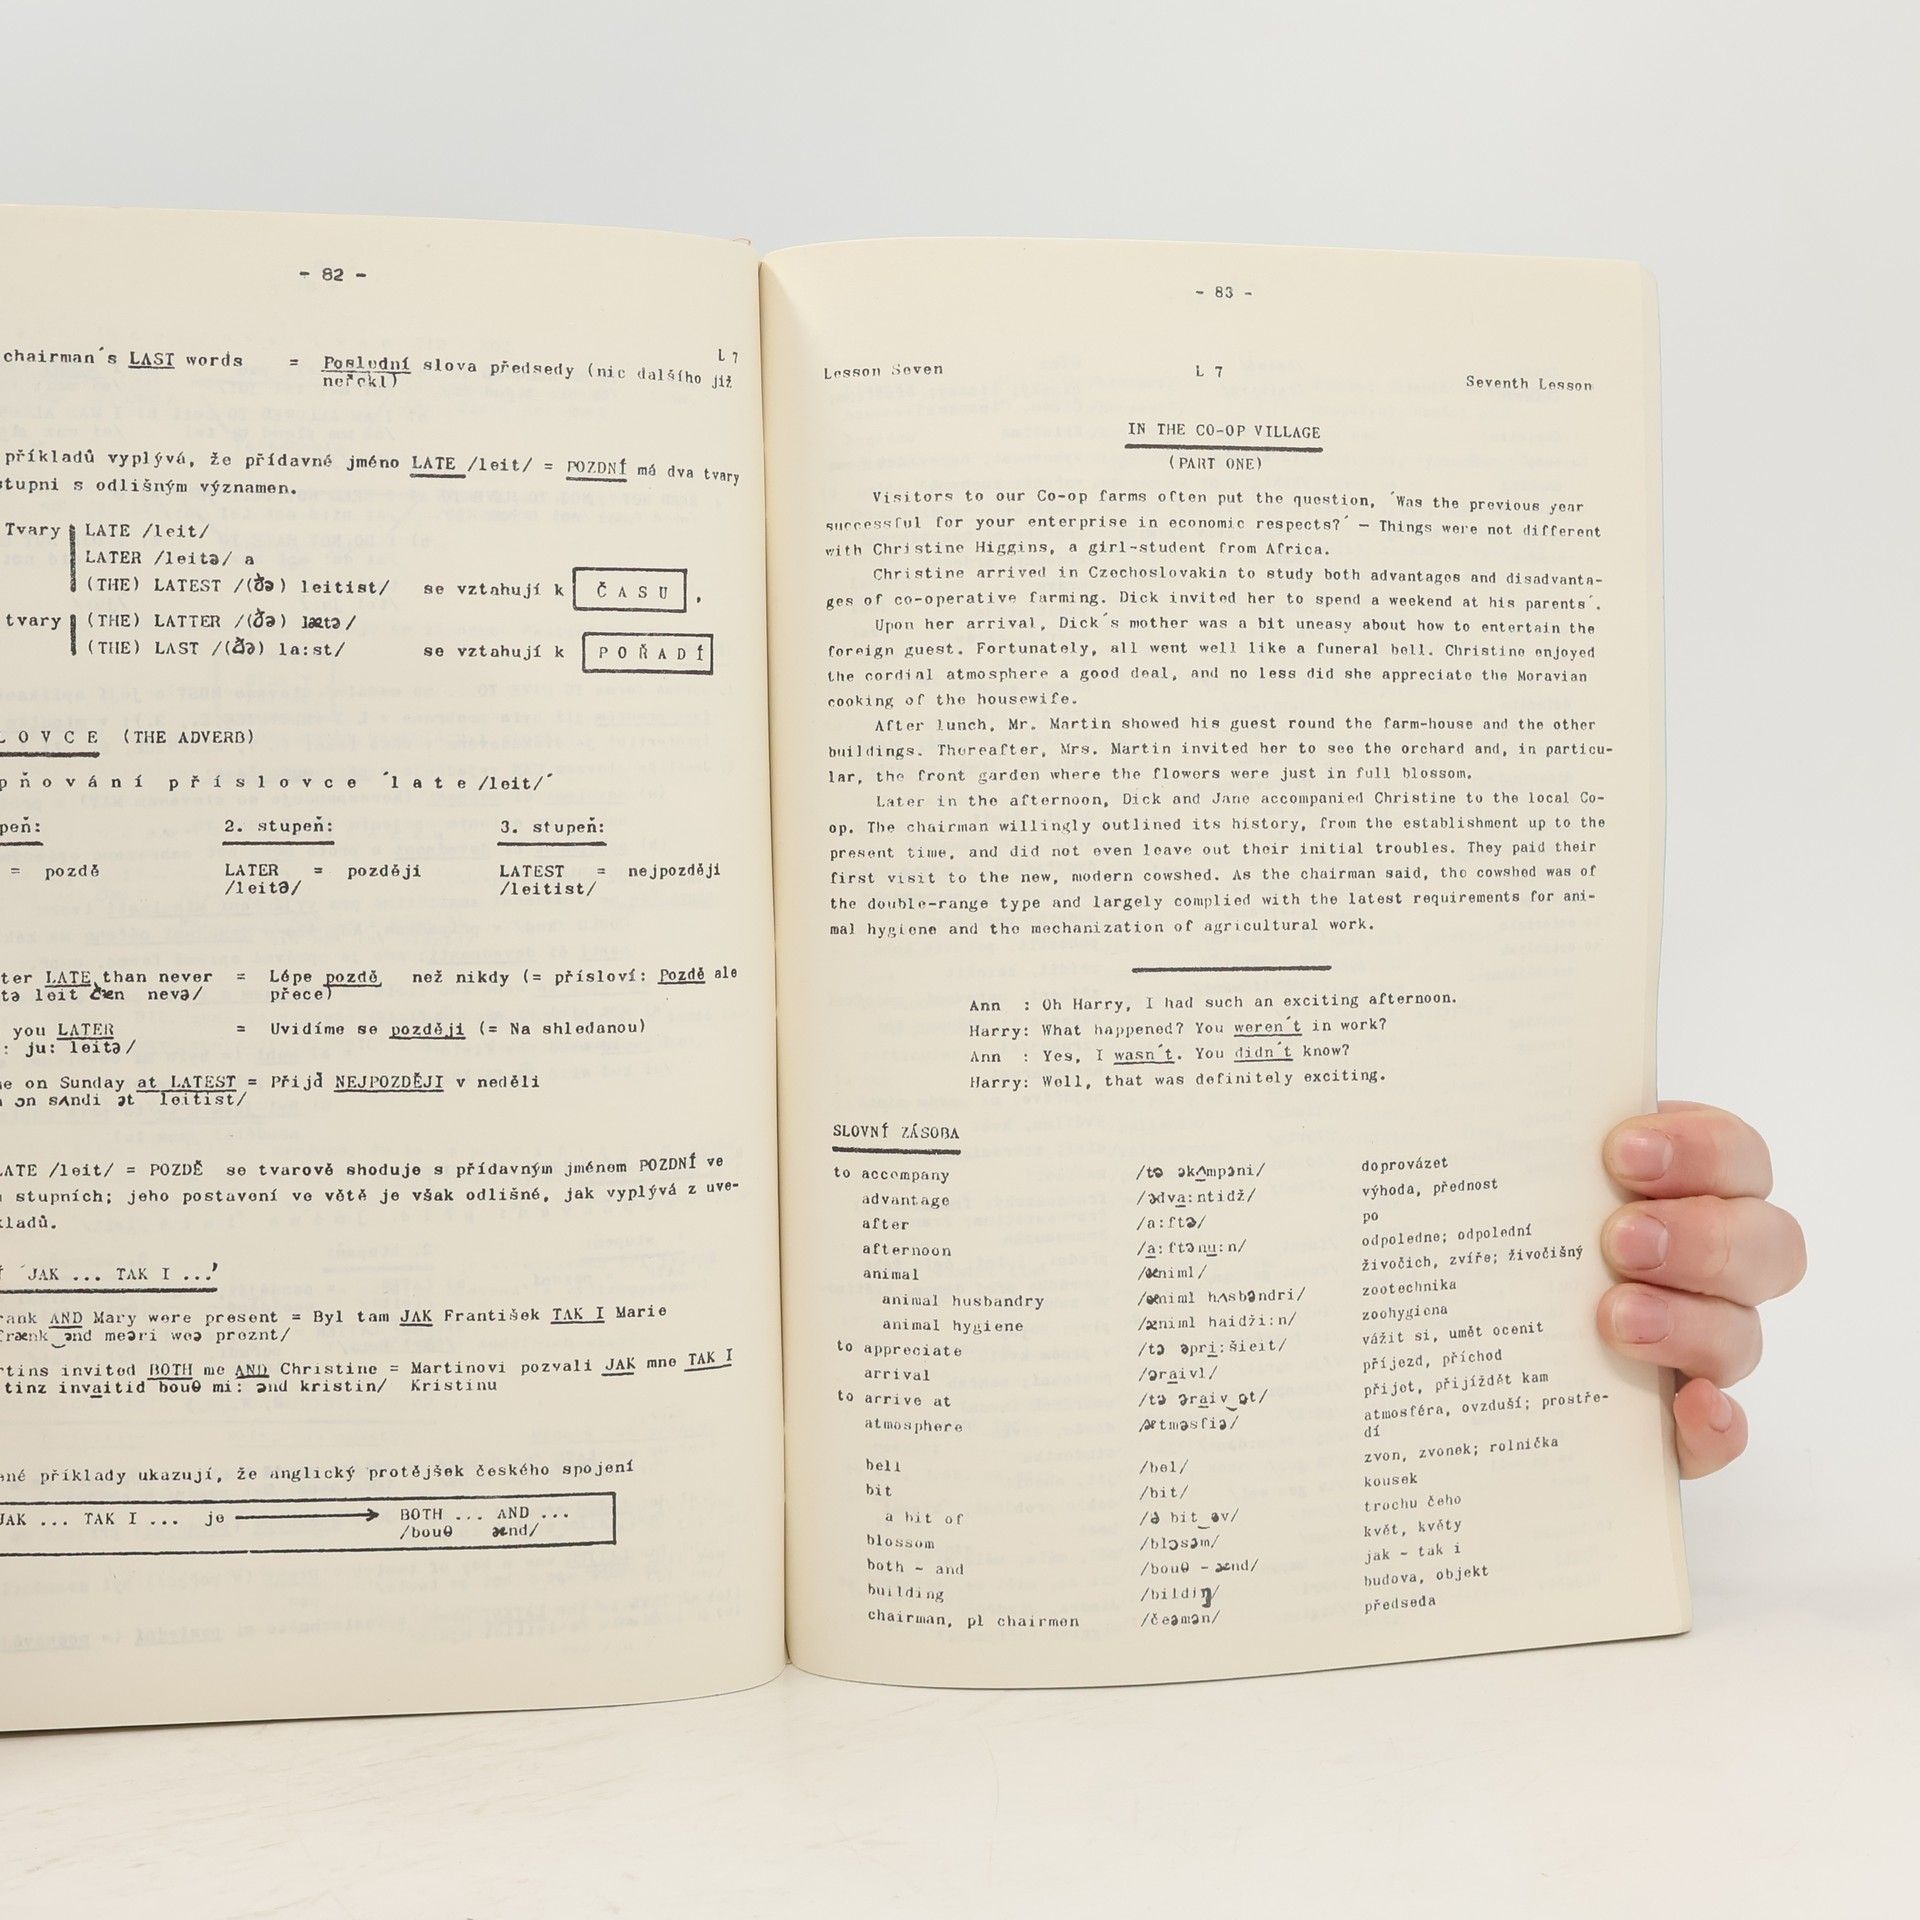 - 82 -
L 7
chairman´s LAST words = Poslední slova předsedy (nic dalšího již
neřekl)
příkladů vyplývá, že přídavné jméno LATE /leit/ = POZDNÍ má dva tvary
stupni s odlišným významen.
Tvary LATE /leit/
LATER /leitə/ a
(THE) LATEST /(ðə) leitist/ se vztahují k ČASU,
tvary (THE) LATTER /(ðə) lætə/
(THE) LAST /(ðə) la:st/ se vztahují k POŘADÍ
LOVCE (THE ADVERB)
pňování příslovce ´late /leit/´
peň: 2. stupeň: 3. stupeň:
= pozdě LATER = později LATEST = nejpozději
/leitə/ /leitist/
ter LATE than never = Lépe pozdě než nikdy (= přísloví: Pozdě ale
tə leit ðæn nevə/ přece)
you LATER = Uvidíme se později (= Na shledanou)
: ju: leitə/
e on Sunday at LATEST = Přijď NEJPOZDĚJI v neděli
ɔn sʌndi ət leitist/
LATE /leit/ = POZDĚ se tvarově shoduje s přídavným jménem POZDNÍ ve
stupních; jeho postavení ve větě je však odlišné, jak vyplývá z uve-
kladů.
´JAK ... TAK I ...´
rank AND Mary were present = Byl tam JAK František TAK I Marie
frænk ənd meəri weə preznt/
rtins invited BOTH me AND Christine = Martinovi pozvali JAK mne TAK I
tinz invaitid bouθ mi: ənd kristin/ Kristinu
ené příklady ukazují, že anglický protějšek českého spojení
JAK ... TAK I ... je → BOTH ... AND ...
/bouθ ænd/
- 83 -
Lesson Seven L 7 Seventh Lesson
IN THE CO-OP VILLAGE
(PART ONE)
Visitors to our Co-op farms often put the question, ´Was the previous year
successful for your enterprise in economic respects?´ - Things were not different
with Christine Higgins, a girl-student from Africa.
Christine arrived in Czechoslovakia to study both advantages and disadvanta-
ges of co-operative farming. Dick invited her to spend a weekend at his parents´.
Upon her arrival, Dick´s mother was a bit uneasy about how to entertain the
foreign guest. Fortunately, all went well like a funeral bell. Christine enjoyed
the cordial atmosphere a good deal, and no less did she appreciate the Moravian
cooking of the housewife.
After lunch, Mr. Martin showed his guest round the farm-house and the other
buildings. Thereafter, Mrs. Martin invited her to see the orchard and, in particu-
lar, the front garden where the flowers were just in full blossom.
Later in the afternoon, Dick and Jane accompanied Christine to the local Co-
op. The chairman willingly outlined its history, from the establishment up to the
present time, and did not even leave out their initial troubles. They paid their
first visit to the new, modern cowshed. As the chairman said, the cowshed was of
the double-range type and largely complied with the latest requirements for ani-
mal hygiene and the mechanization of agricultural work.
Ann : Oh Harry, I had such an exciting afternoon.
Harry: What happened? You weren´t in work?
Ann : Yes, I wasn´t. You didn´t know?
Harry: Well, that was definitely exciting.
SLOVNÍ ZÁSOBA
to accompany /tə əkʌmpəni/ doprovázet
advantage /ədva:ntidž/ výhoda, přednost
after /a:ftə/ po
afternoon /a:ftənu:n/ odpoledne; odpolední
animal /æniml/ živočich, zvíře; živočišný
animal husbandry /æniml hʌsbəndri/ zootechnika
animal hygiene /æniml haidži:n/ zoohygiena
to appreciate /tə əpri:šieit/ vážit si, umět ocenit
arrival /əraivl/ příjezd, příchod
to arrive at /tə əraiv ət/ přijet, přijíždět kam
atmosphere /ætməsfiə/ atmosféra, ovzduší; prostře-
dí
bell /bel/ zvon, zvonek; rolnička
bit /bit/ kousek
a bit of /ə bit əv/ trochu čeho
blossom /blɔsəm/ květ, květy
both - and /bouθ - ænd/ jak - tak i
building /bildiŋ/ budova, objekt
chairman, pl chairmen /čeəmən/ předseda